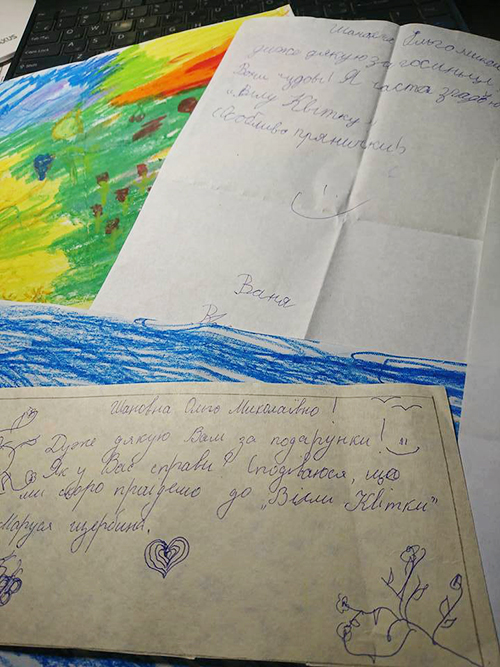 Шановна Ольго Микол
дуже дякую за гостинки
Ваші чудові! Я часто згадую
„Білу Квітку"
(Особливо прянички!)
Ваня
Шановна Ольго Миколаївно!
Дуже дякую Вам за подарунки!
Як у Вас справи? Сподіваюся, що
ми скоро приїдемо до „Білли Квітки"
Маруся Щербина.